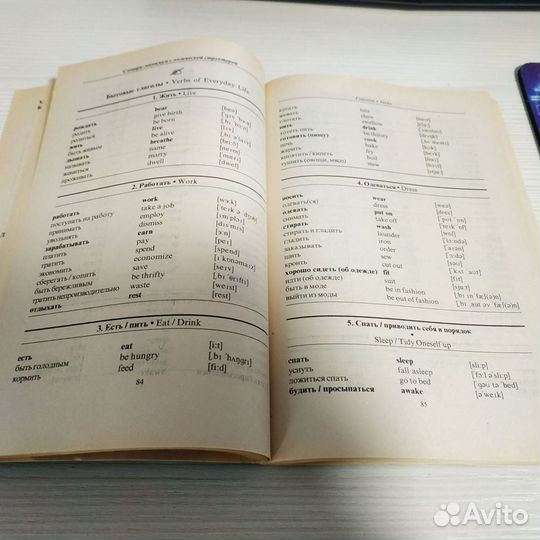 Словарь-минимум с тематической структурой
Бытовые глаголы • Verbs of Everyday Life
1. Жить • Live
рождать bear [beə]
родить give birth
родиться be born
жить live [lɪv]
быть живым be alive
дышать breathe [bri:ð]
называть name [neɪm]
жениться marry
проживать dwell [dwel]
2. Работать • Work
работать work [wə:k]
поступать на работу take a job
принимать employ
увольнять dismiss
зарабатывать earn [ə:n]
платить pay [peɪ]
тратить spend
экономить economize
сберегать / копить save [seɪv]
быть бережливым be thrifty
тратить непроизводительно waste [weɪst]
отдыхать rest [rest]
3. Есть / пить • Eat / Drink
есть eat [i:t]
быть голодным be hungry [ˌbɪ ˈhʌŋgrɪ]
кормить feed [fi:d]
84
Глаголы • Verbs
кусать bite
жевать chew
глотать swallow
пить drink
хотеть пить be thirsty
готовить (пищу) cook [kuk]
печь bake [beɪk]
жарить fry [fraɪ]
кипятить / кипеть boil [bɔɪl]
тушить (овощи, мясо) stew [stju:]
4. Одеваться • Dress
носить wear [weə]
одевать(ся) dress [dres]
одевать put on
снимать take off
стирать wash [wɔʃ]
стирать и гладить launder
гладить iron
заказывать order
шить sew [səu]
кроить cut out
хорошо сидеть (об одежде) fit [fɪt]
идти (об одежде) suit
быть в моде be in fashion
выйти из моды be out of fashion
5. Спать / приводить себя в порядок •
Sleep / Tidy Oneself up
спать sleep [sli:p]
уснуть fall asleep [ˌfɔ:l əˈsli:p]
ложиться спать go to bed [ˌgəu tə ˈbed]
будить / просыпаться awake [əˈweɪk]
85
Avito